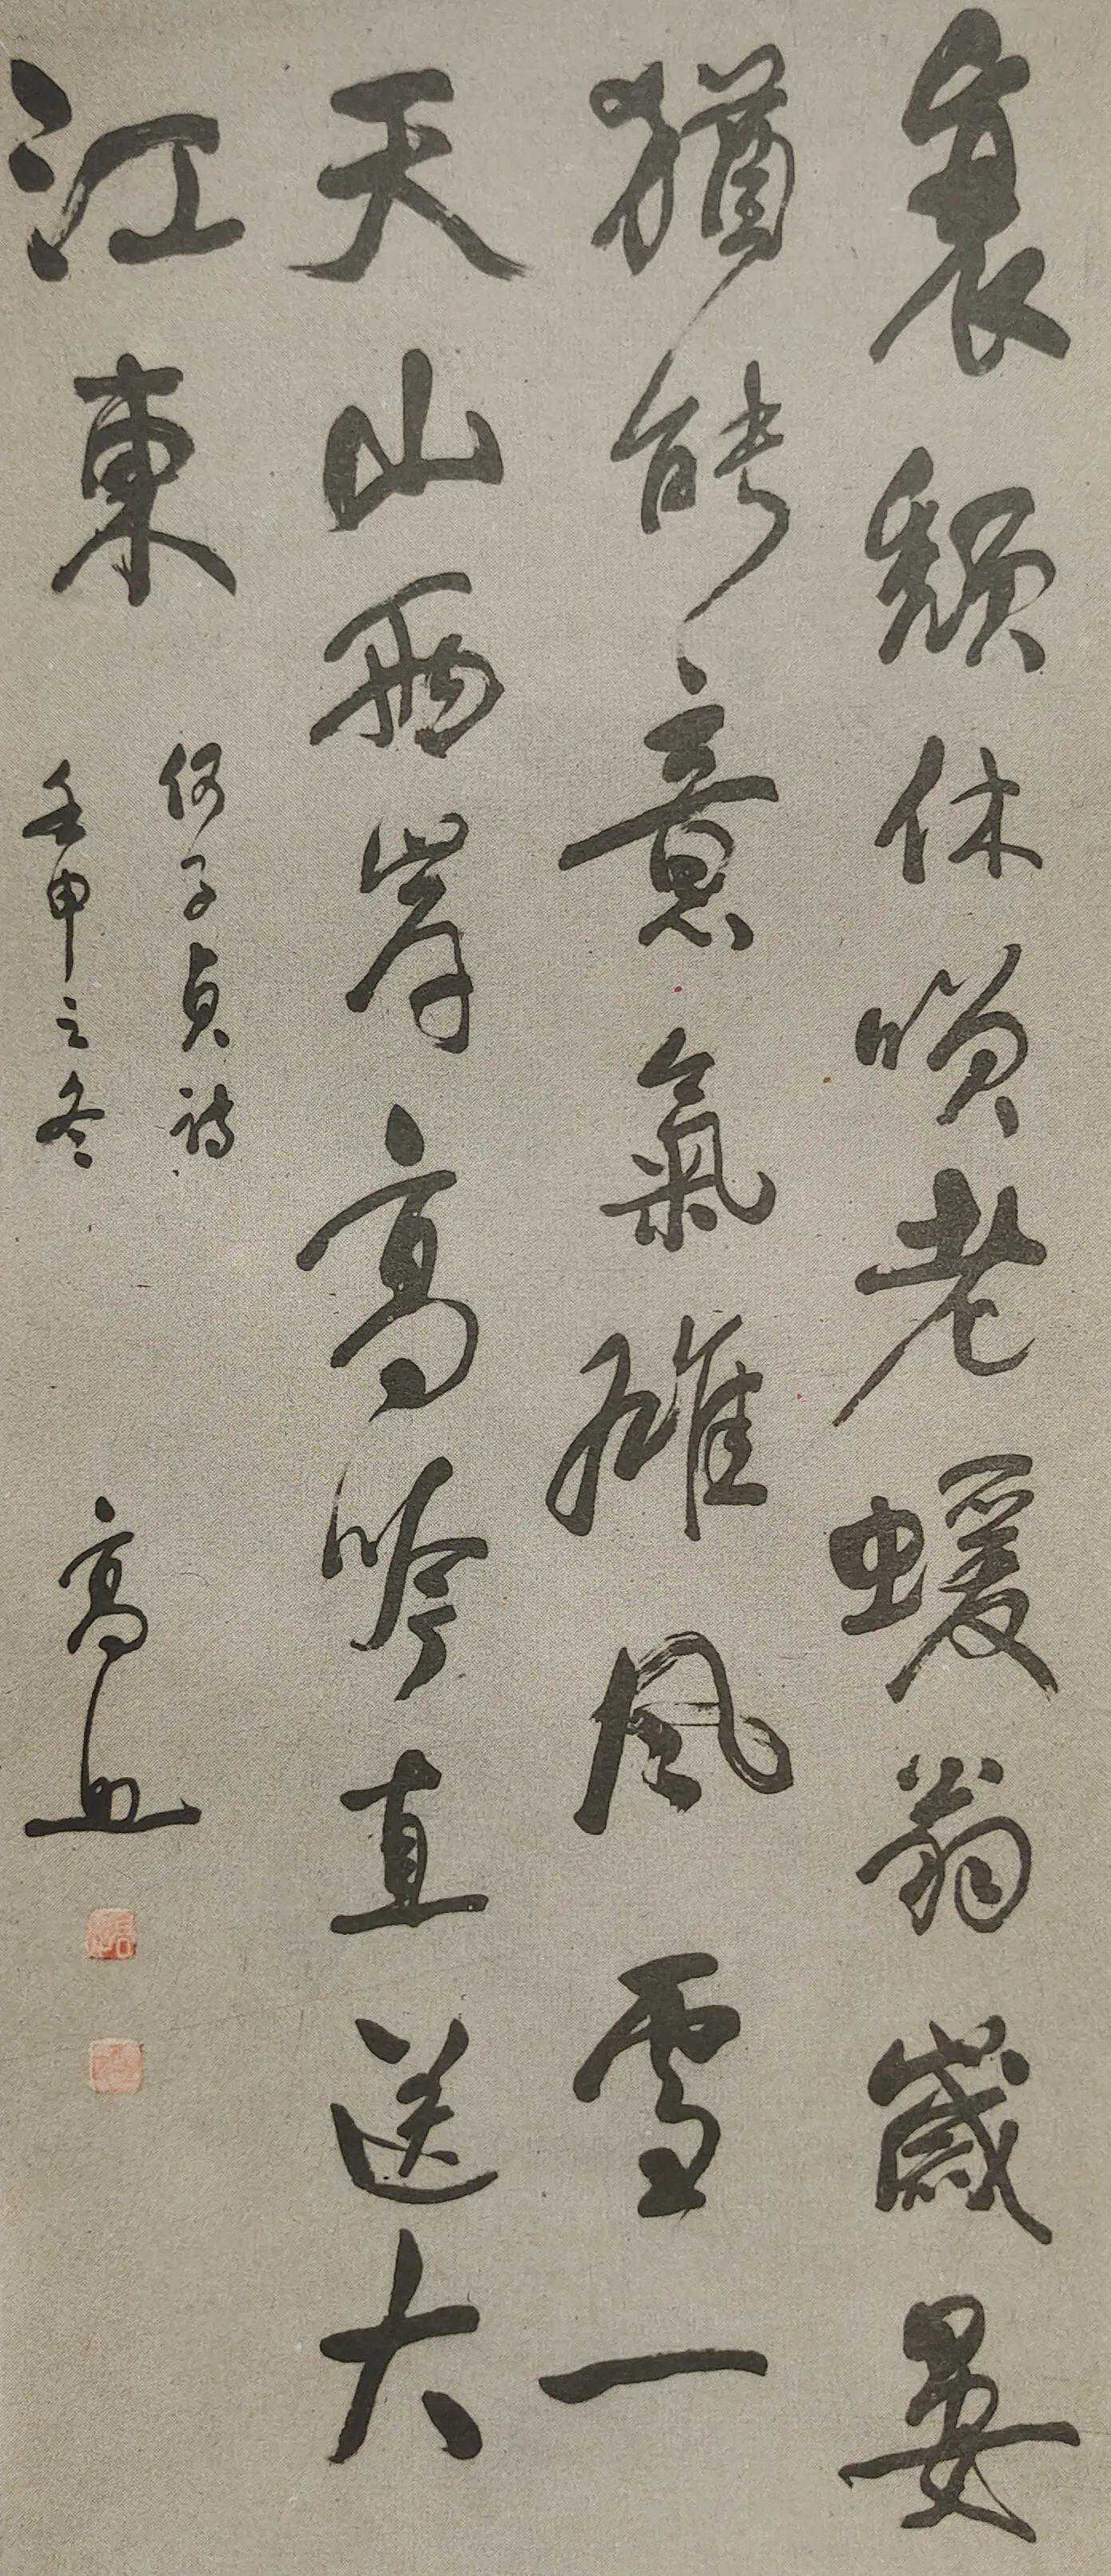 衰頹休唄老蝯翁歲晏
猶能意氣雄風雪一
天山兩岸高吟直送大
江東
何子貞詩
壬申之冬
高